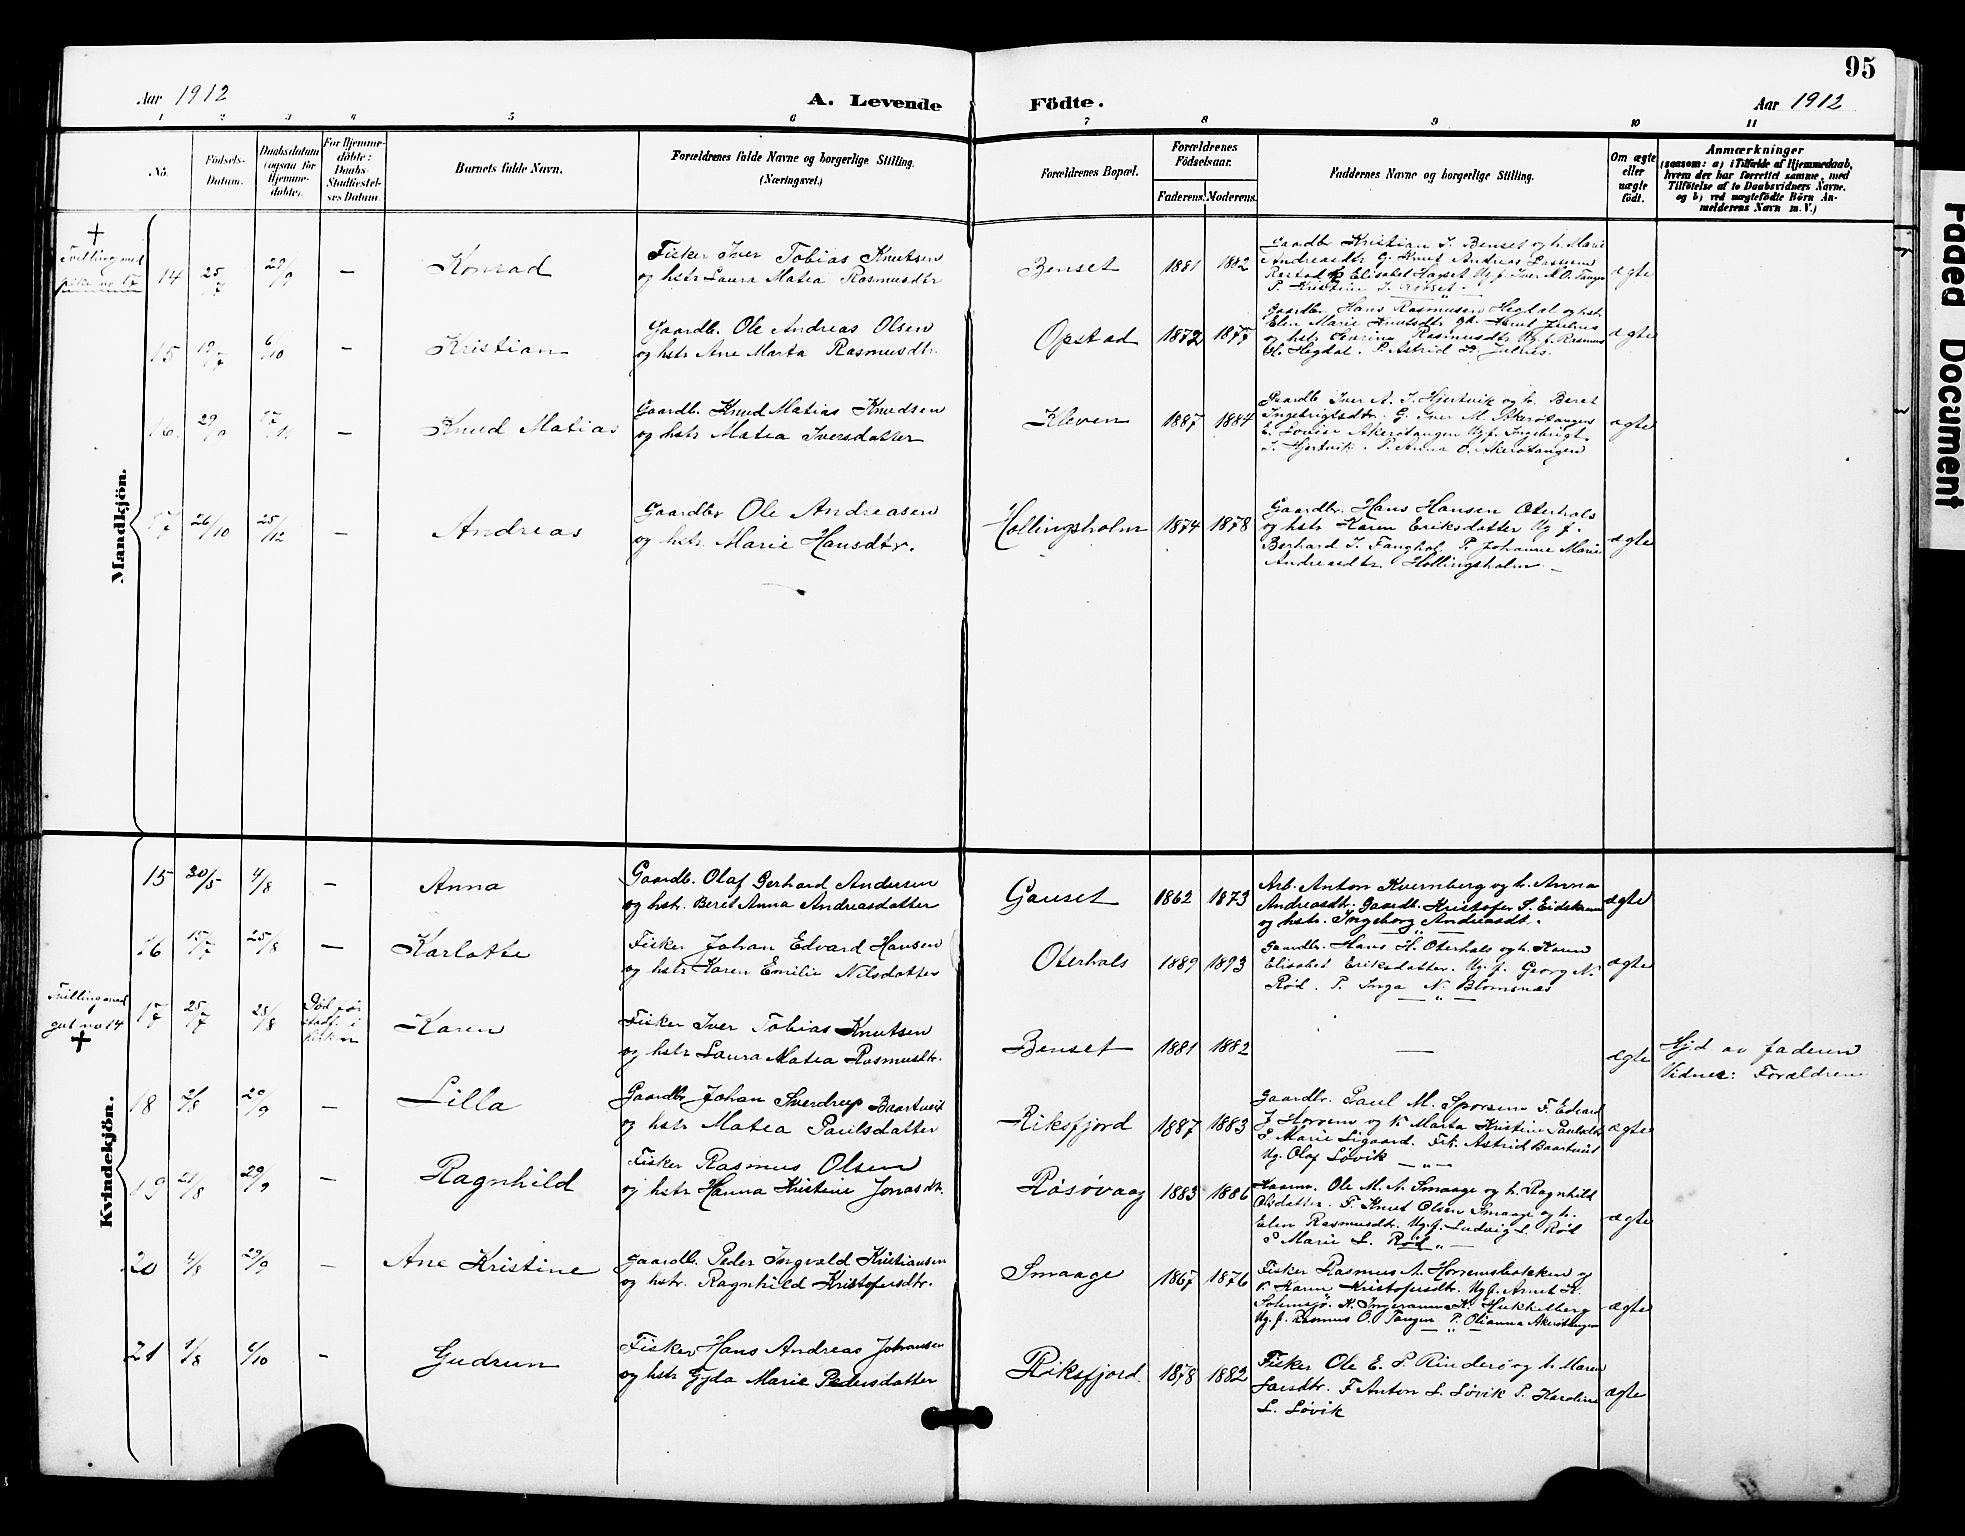 95
Aar 1912
A. Levende
Födte.
Aar 1912
1 2 3 4 5 6 7 8 9 10 11
No.
Födsels-
Datum.
Daabsdatum
(ogsaa for
Hjemme-
döbte).
For Hjemme-
döbte:
Daabs-
Stadfæstel-
ses Datum.
Barnets fulde Navn.
Forældrenes fulde Navne og borgerlige Stilling.
(Næringsvei.)
Forældrenes Bopæl.
Forældrenes
Födselsaar.
Faderens. Moderens.
Faddernes Navne og borgerlige Stilling.
Om ægte
eller
uægte
født.
Anmærkninger
(saasom: a) i Tilfælde af Hjemmedaab,
hvem der har forrettet samme, med
Tilföielse af to Daabsvidners Navne,
og b) ved uægtefödte Börn An-
melderens Navn m. V.)
Mandkjön.
✝
Tvilling med
pike no 17
14 25/7 29/9 — Konrad
Fisker Iver Tobias Knutsen
og hstr Laura Matea Rasmusdtr
Benset 1881 1882
Gaardbr Kristian J. Benset og h. Marie
Andreasdtr G. Knut Andreas Lassesen
Rostad Elisabet Harset Ug.f. Iver A. O. Tangen
P. Kristine J. Rødset.
ægte
15 19/7 6/10 — Kristian
Gaardb. Ole Andreas Olsen
og hstr Ane Marta Rasmusdtr
Opstad 1872 1877
Gaardbr Hans Rasmusen Hegdal og hst.
Elen Marie Knutsdtr Gd. Knut Julnes
og hstr Karine Rasmusdtr Ug f. Rasmus
H. Hegdal. P. Astrid P. Julnes.
ægte
16 29/9 17/11 — Knud Matias
Gaardb. Knud Matias Knudsen
og hstr Matea Iversdatter
Kleven 1887 1884
Gaardb Iver A. J. Hjertvik og h. Beret
Ingebrigtsdtr. G. Iver M. Akerøtangen
E. Lovise Akerøtangen Ug.f. Ingebrigt
J. Hjertvik. P. Anna O. Akerøtangen
ægte
17 26/10 25/12 — Andreas
Gaardbr Ole Andreasen
og hstr. Marie Hansdtr.
Hollingsholm 1874 1878
Gaardbr. Hans Hansen Oterhals
og hstr Karen Eriksdatter Ug f.
Berhard J. Fanghol P. Johanne Marie
Andreasdtr. Hollingsholm —
ægte
Kvindekjön.
15 30/5 4/8 — Anna
Gaardb. Olaf Gerhard Andersen
og hst. Berit Anna Andreasdatter
Gauset 1862 1873
Arb. Anton Kvernberg og h. Anna
Andreasdtr. Gaardb. Kristofer S. Eidskrem
og hstr. Ingeborg Andreasdt.
ægte
16 15/7 25/8 — Karlotte
Fisker Johan Edvard Hansen
og hstr Karen Emilie Nilsdatter
Oterhals 1889 1893
Gaardbr. Hans H. Oterhals og h. Karen
Elisabet Eriksdatter. Ug.f. Georg N.
Rød. P. Inga N. Blomsnæs
— „ —
ægte
Tvilling med
gut no 14
✝
17 25/7 28/8
Død før
stadf. i
kirken
Karen
Fisker Iver Tobias Knutsen
og hstr Laura Matea Rasmusdtr.
Benset 1881 1882
—
ægte
Hj.d. av faderen
Vidner: Forældrene
18 2/8 29/9 — Lilla
Gaardbr Johan Sverdrup Baartveit
og hstr Matea Paulsdatter
Riksfjord 1887 1883
Gaardbr. Paul M. Sporsem F. Edvard
J. Horrem og K Marta Kristine Paulsdtr
P Marie Ligaard. Frk. Astrid Baartveit
Ug. Olaf Løvik — „ —
ægte
19 21/8 29/9 — Ragnhild
Fisker Rasmus Olsen
og hstr Hanna Kristine Jonasdt.
Råsøvaag 1883 1886
Kaarm. Ole M. A. Smaage og h. Ragnhild
Olsdatter. F. Knut Olsen Smaage og h.
Elen Rasmusdtr. Ug.f. Ludvig L. Rød
P Marie L. Rød „ —
ægte
20 4/8 29/9 — Ane Kristine
Gaardb. Peder Ingvald Kristiansen
og hstr. Ragnhild Kristofersdtr.
Smaage 1867 1876
Fisker Rasmus A. Horremsbakken og
K. Karen Kristofersdtr. Ug f. Arnt K.
Solemsjø. K. Ingeranna K. Hukkelberg
Ug. f. Rasmus O. Tangen P. Olianna Akerøtangen
ægte
21 1/8 6/10 — Gudrun
Fisker Hans Andreas Johansen
og hstr Gyda Marie Pedersdatter
Riksfjord. 1878 1882
Fisker Ole E. P. Rinderø og h. Maren
Larsdtr. F Anton L. Løvik P. Karoline
L. Løvik
ægte
Faded Document